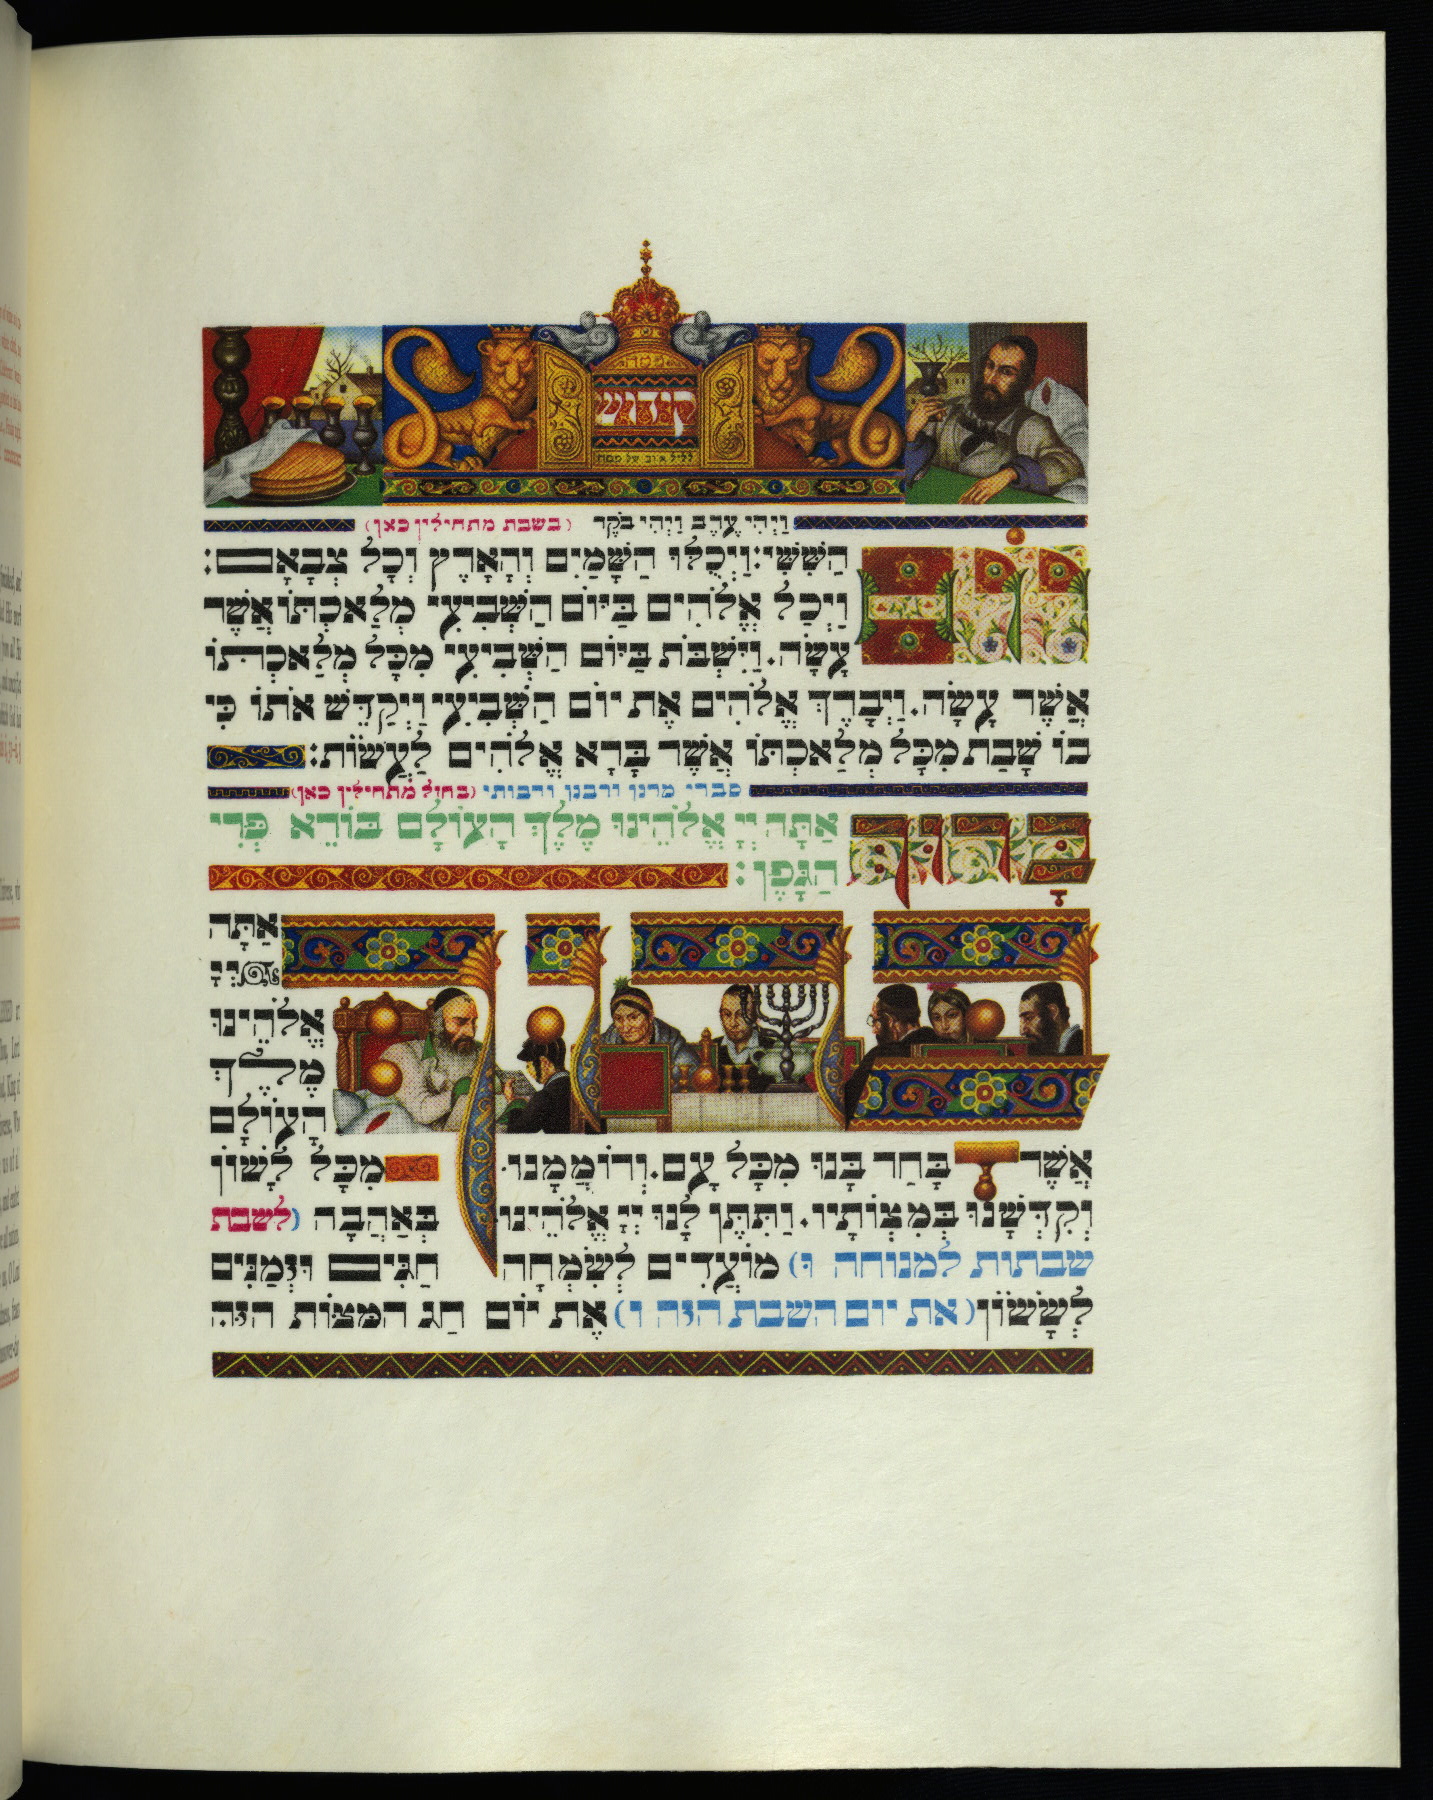 קידוש
לליל א׳ וב׳ של פסח
(בשבת מתחילין כאן) וַיְהִי עֶרֶב וַיְהִי בֹקֶר
יוֹם הַשִּׁשִּׁי: וַיְכֻלּוּ הַשָּׁמַיִם וְהָאָרֶץ וְכָל צְבָאָם:
וַיְכַל אֱלֹהִים בַּיּוֹם הַשְּׁבִיעִי מְלַאכְתּוֹ אֲשֶׁר
עָשָׂה. וַיִּשְׁבֹּת בַּיּוֹם הַשְּׁבִיעִי מִכָּל מְלַאכְתּוֹ
אֲשֶׁר עָשָׂה. וַיְבָרֶךְ אֱלֹהִים אֶת יוֹם הַשְּׁבִיעִי וַיְקַדֵּשׁ אֹתוֹ כִּי
בוֹ שָׁבַת מִכָּל מְלַאכְתּוֹ אֲשֶׁר בָּרָא אֱלֹהִים לַעֲשׂוֹת:
סברי מרנן ורבנן ורבותי (בחול מתחילין כאן)
בָּרוּךְ אַתָּה יְיָ אֱלֹהֵינוּ מֶלֶךְ הָעוֹלָם בּוֹרֵא פְּרִי
הַגָּפֶן:
בָּרוּךְ אַתָּה
יְיָ
אֱלֹהֵינוּ
מֶלֶךְ
הָעוֹלָם
אֲשֶׁר בָּחַר בָּנוּ מִכָּל עָם. וְרוֹמֲמָנוּ. מִכָּל לָשׁוֹן
וְקִדְּשָׁנוּ בְּמִצְוֹתָיו. וַתִּתֶּן לָנוּ יְיָ אֱלֹהֵינוּ בְּאַהֲבָה (לשבת
שבתות למנוחה וּ) מוֹעֲדִים לְשִׂמְחָה חַגִּים וּזְמַנִּים
לְשָׂשׂוֹן (את יום השבת הזה ו) אֶת יוֹם חַג הַמַּצּוֹת הַזֶּה